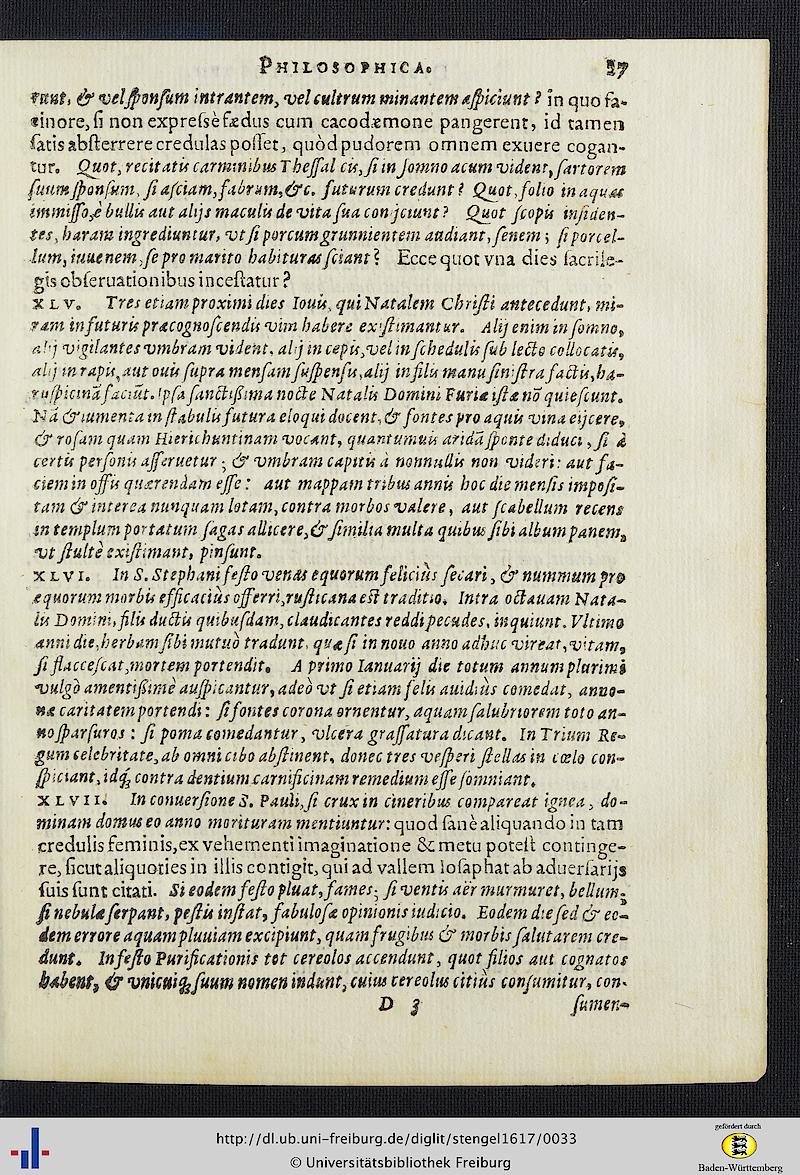 PHILOSOPHICA. 27
runt, & vel ſponſum intrantem, vel cultrum minantem aſpiciunt? in quo fa-
cinore, ſi non expreſsè fædus cum cacodæmone pangerent, id tamen
ſatis abſterrere credulas poſſet, quòd pudorem omnem exuere cogan-
tur. Quot, recitatis carminibus Theſſal cis, ſi in ſomno acum vident, ſartorem
ſuum ſponſum, ſi aſciam, fabrum, &c. futurum credunt? Quot, folio in aquas
immiſſo, è bullis aut alijs maculis de vita ſua conijciunt? Quot ſcopis inſiden-
tes, haram ingrediuntur, vt ſi porcum grunnientem audiant, ſenem; ſi porcel-
lum, iuuenem, ſe pro marito habituras ſciant? Ecce quot vna dies ſacrile-
gis obſeruationibus inceſtatur?
XLV. Tres etiam proximi dies Iouis, qui Natalem Chriſti antecedunt, mi-
ram in futuris præcognoſcendis vim habere exiſtimantur. Alij enim in ſomno,
alij vigilantes vmbram vident, alij in cepis, vel in ſchedulis ſub lecto collocatis,
alij in rapis, aut ouis ſupra menſam ſuſpenſis, alij in filis manu ſiniſtra factis, ha-
ruſpicinā faciūt. Ipſa ſanctißima nocte Natalis Domini Furiæ iſtæ nō quieſcunt.
Nā & iumenta in ſtabulis futura eloqui docent, & fontes pro aquis vina eijcere,
& roſam quam Hierichuntinam vocant, quantumuis aridā ſponte diduci, ſi à
certis perſonis aſſeruetur; & vmbram capitis à nonnullis non videri: aut fa-
ciem in offis quærendam eſſe: aut mappam tribus annis hoc die menſis impoſi-
tam & interea nunquam lotam, contra morbos valere, aut ſcabellum recens
in templum portatum ſagas allicere, & ſimilia multa quibus ſibi album panem,
vt ſtultè exiſtimant, pinſunt.
XLVI. In S. Stephani feſto venas equorum feliciùs ſecari, & nummum pro
equorum morbis efficaciùs offerri, ruſticana eſt traditio. Intra octauam Nata-
lis Domini, filis ductis quibuſdam, claudicantes reddi pecudes, inquiunt. Vltimo
anni die, herbam ſibi mutuò tradunt, quæ ſi in nouo anno adhuc vireat, vitam,
ſi flacceſcat, mortem portendit. A primo Ianuarij die totum annum plurimi
vulgò amentißimè auſpicantur, adeò vt ſi etiam felis auidiùs comedat, anno-
næ caritatem portendi: ſi fontes corona ornentur, aquam ſalubriorem toto an-
no ſparſuros: ſi poma comedantur, vlcera graſſatura dicant. In Trium Re-
gum celebritate, ab omni cibo abſtinent, donec tres veſperi ſtellas in cœlo con-
ſpiciant, idq́; contra dentium carnificinam remedium eſſe ſomniant.
XLVII. In conuerſione S. Pauli, ſi crux in cineribus compareat ignea, do-
minam domus eo anno morituram mentiuntur: quod ſanè aliquando in tam
credulis feminis, ex vehementi imaginatione & metu poteſt continge-
re, ſicut aliquoties in illis contigit, qui ad vallem Ioſaphat ab aduerſarijs
ſuis ſunt citati. Si eodem feſto pluat, fames; ſi ventis aër murmuret, bellum;
ſi nebulæ ſerpant, peſtis inſtat, fabuloſæ opinionis iudicio. Eodem die ſed & eo-
dem errore aquam pluuiam excipiunt, quam frugibus & morbis ſalutarem cre-
dunt. In feſto Purificationis tot cereolos accendunt, quot filios aut cognatos
habent, & vnicuiq́; ſuum nomen indunt, cuius cereolus citiùs conſumitur, con-
D 3 ſumen-
http://dl.ub.uni-freiburg.de/diglit/stengel1617/0033
© Universitätsbibliothek Freiburg
gefördert durch
Baden-Württemberg